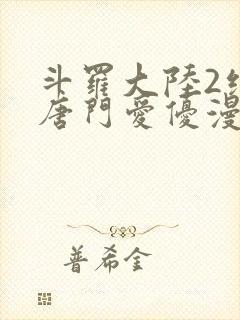 斗羅大陸2
唐門愛優漫
普希金